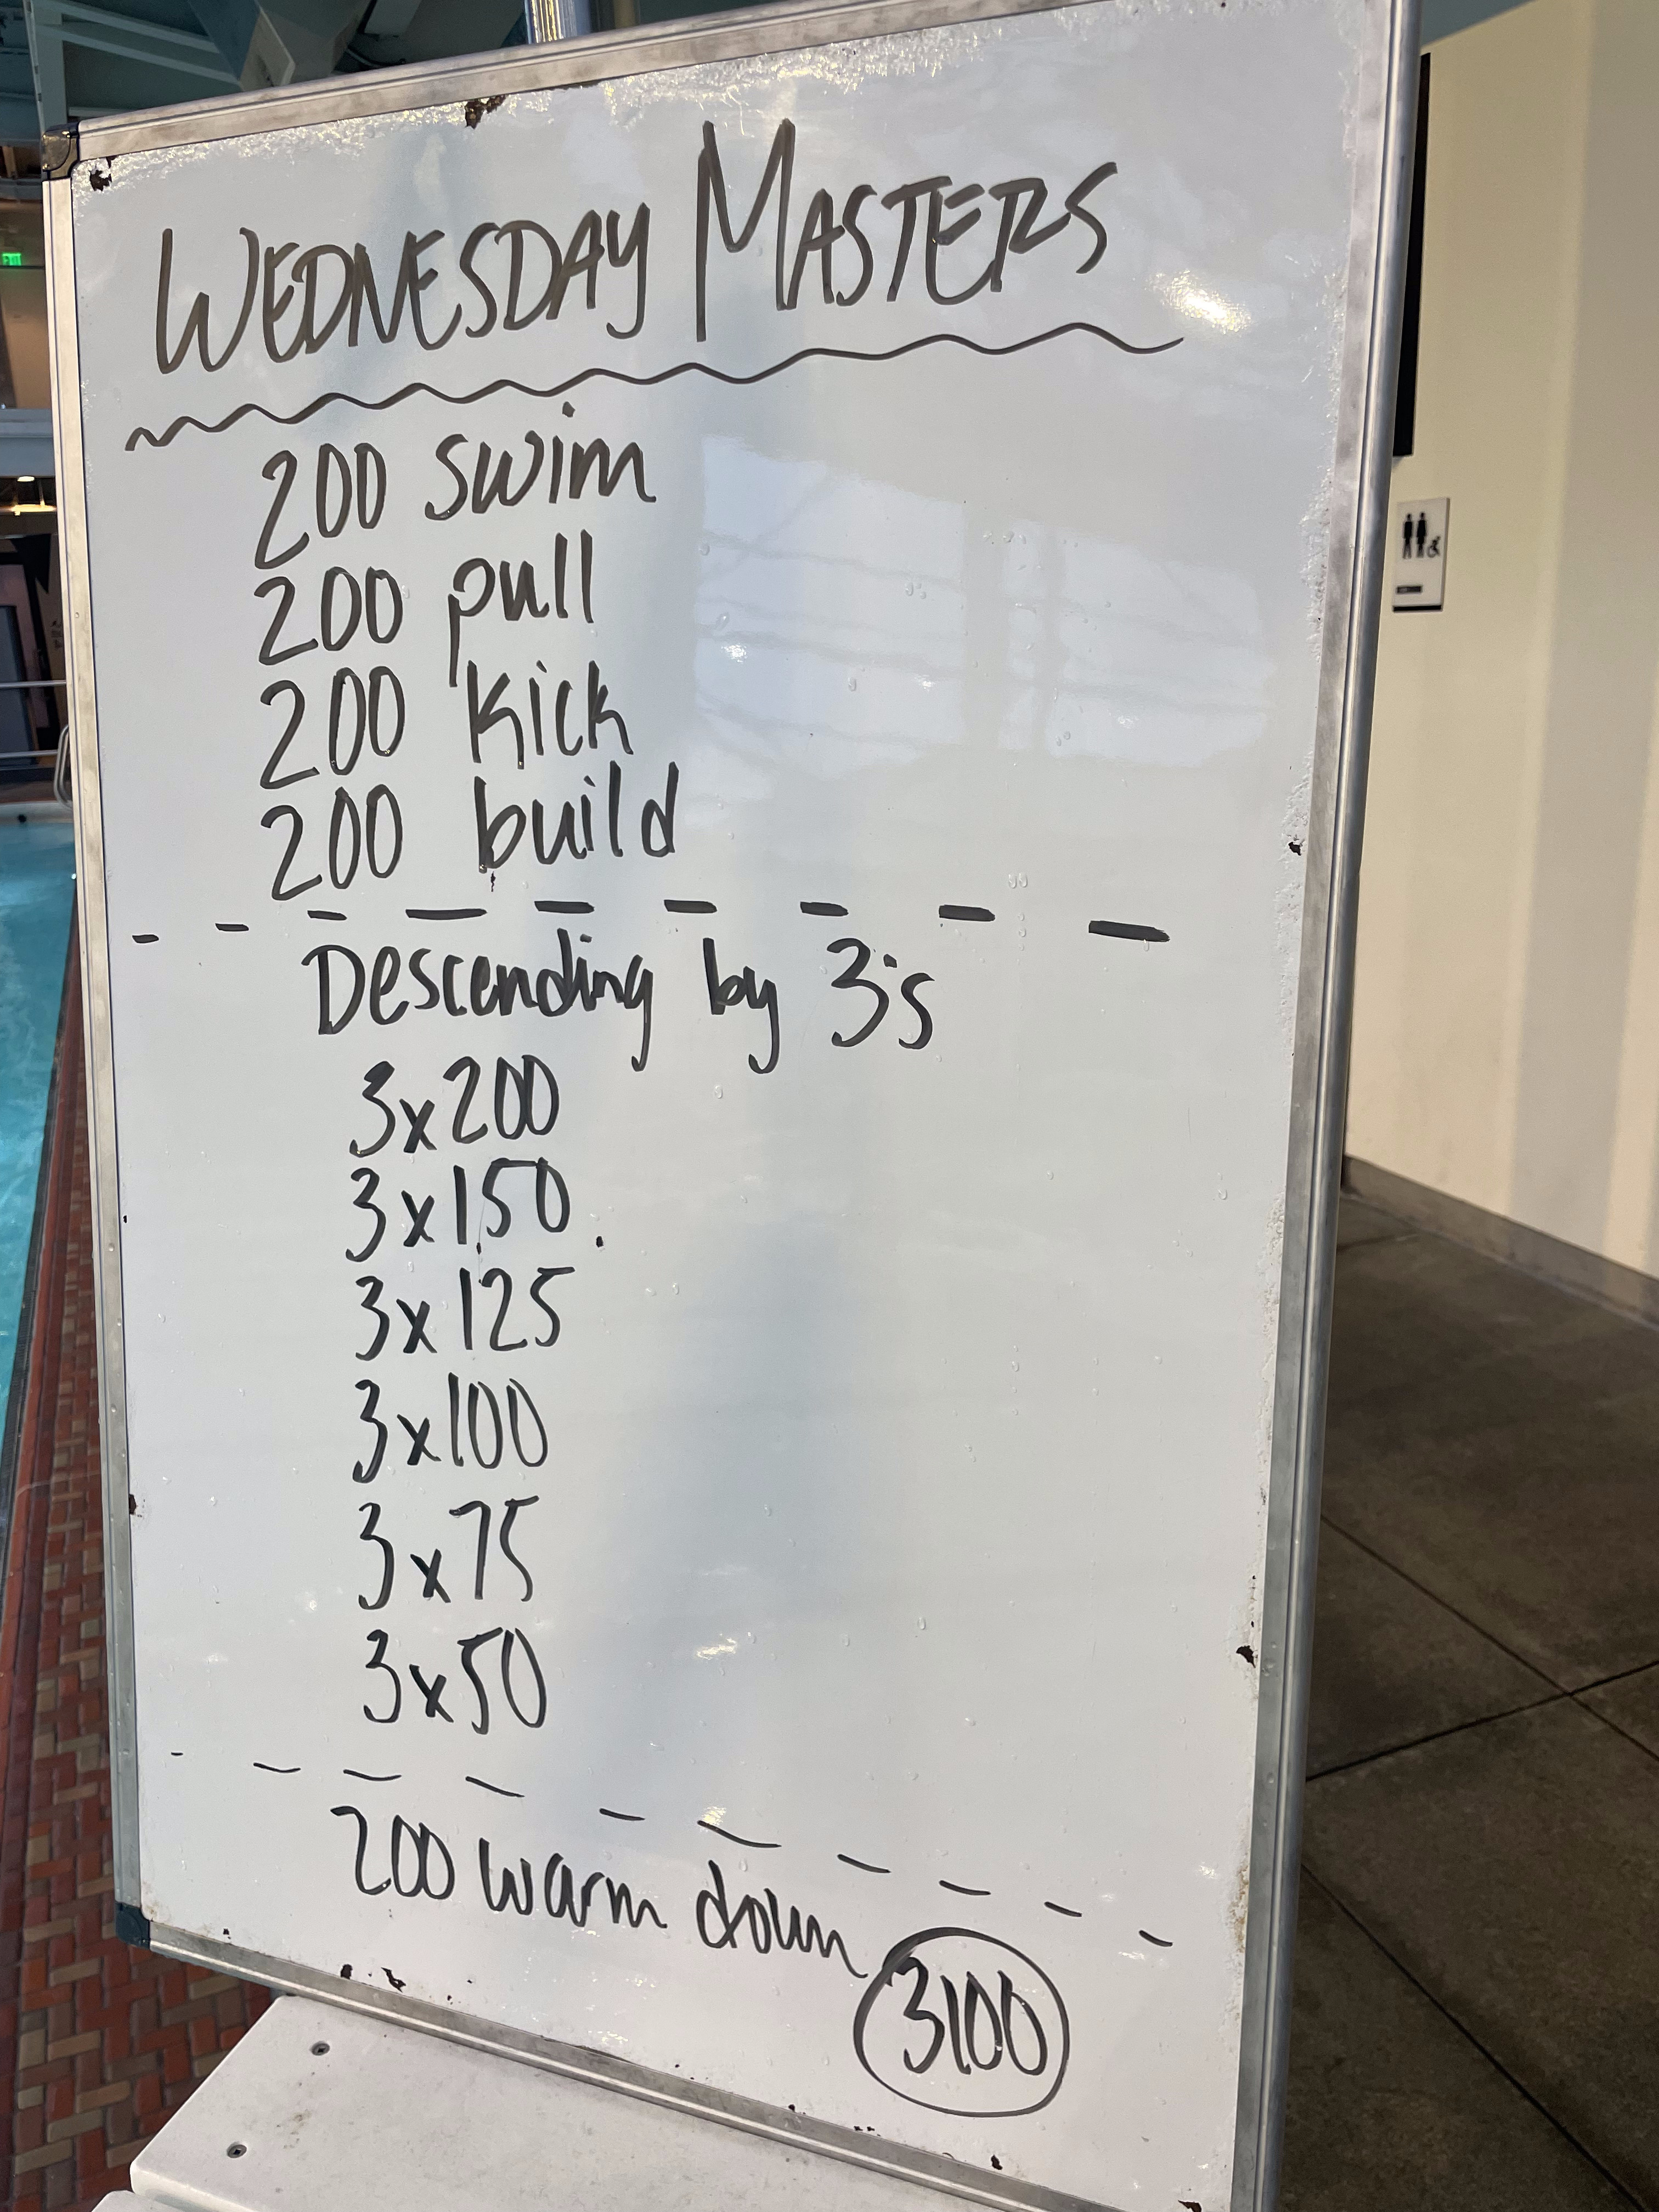 WEDNESDAY MASTERS
200 swim
200 pull
200 kick
200 build
Descending by 3's
3x200
3x150
3x125
3x100
3x75
3x50
200 warm down
3100